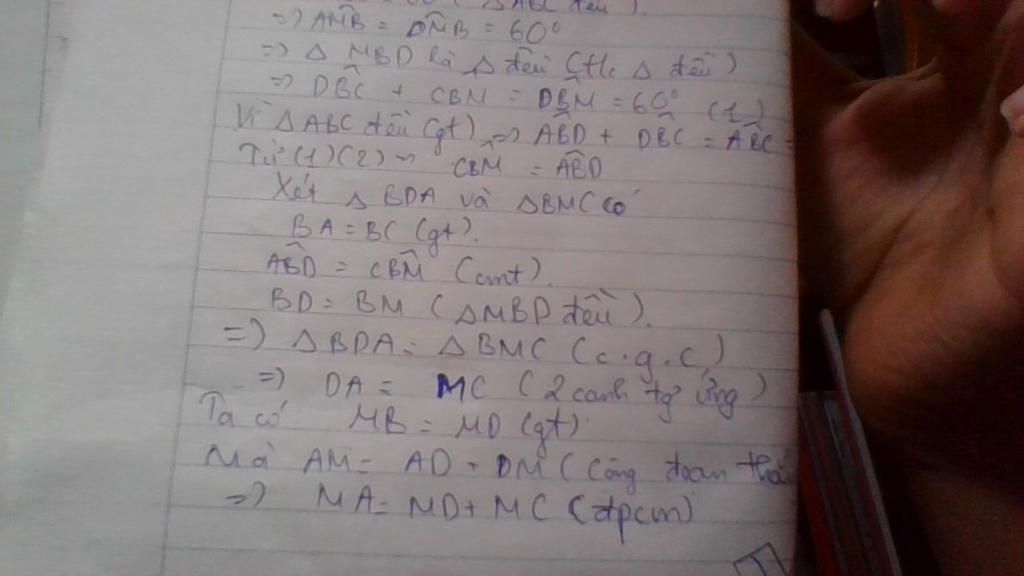 (Δ ABC đều).
=> AMB̂ = DMB̂ = 60°
=> Δ MBD là Δ đều (t/c Δ đều)
=> DBĈ + CBM = DBM̂ = 60° (1)
Vì Δ ABC đều (gt) => ABD̂ + DBĈ = ABĈ =
Từ (1)(2) => CBM̂ = ABD̂
Xét Δ BDA và Δ BMC có
BA = BC (gt).
ABD̂ = CBM̂ (cmt).
BD = BM (Δ MBD đều).
=> Δ BDA = Δ BMC (c.g.c)
=> DA = MC (2 cạnh tg ứng)
Ta có: MB = MD (gt)
Mà AM = AD + DM (Cộng đoạn
=> MA = MD + MC (đpcm)